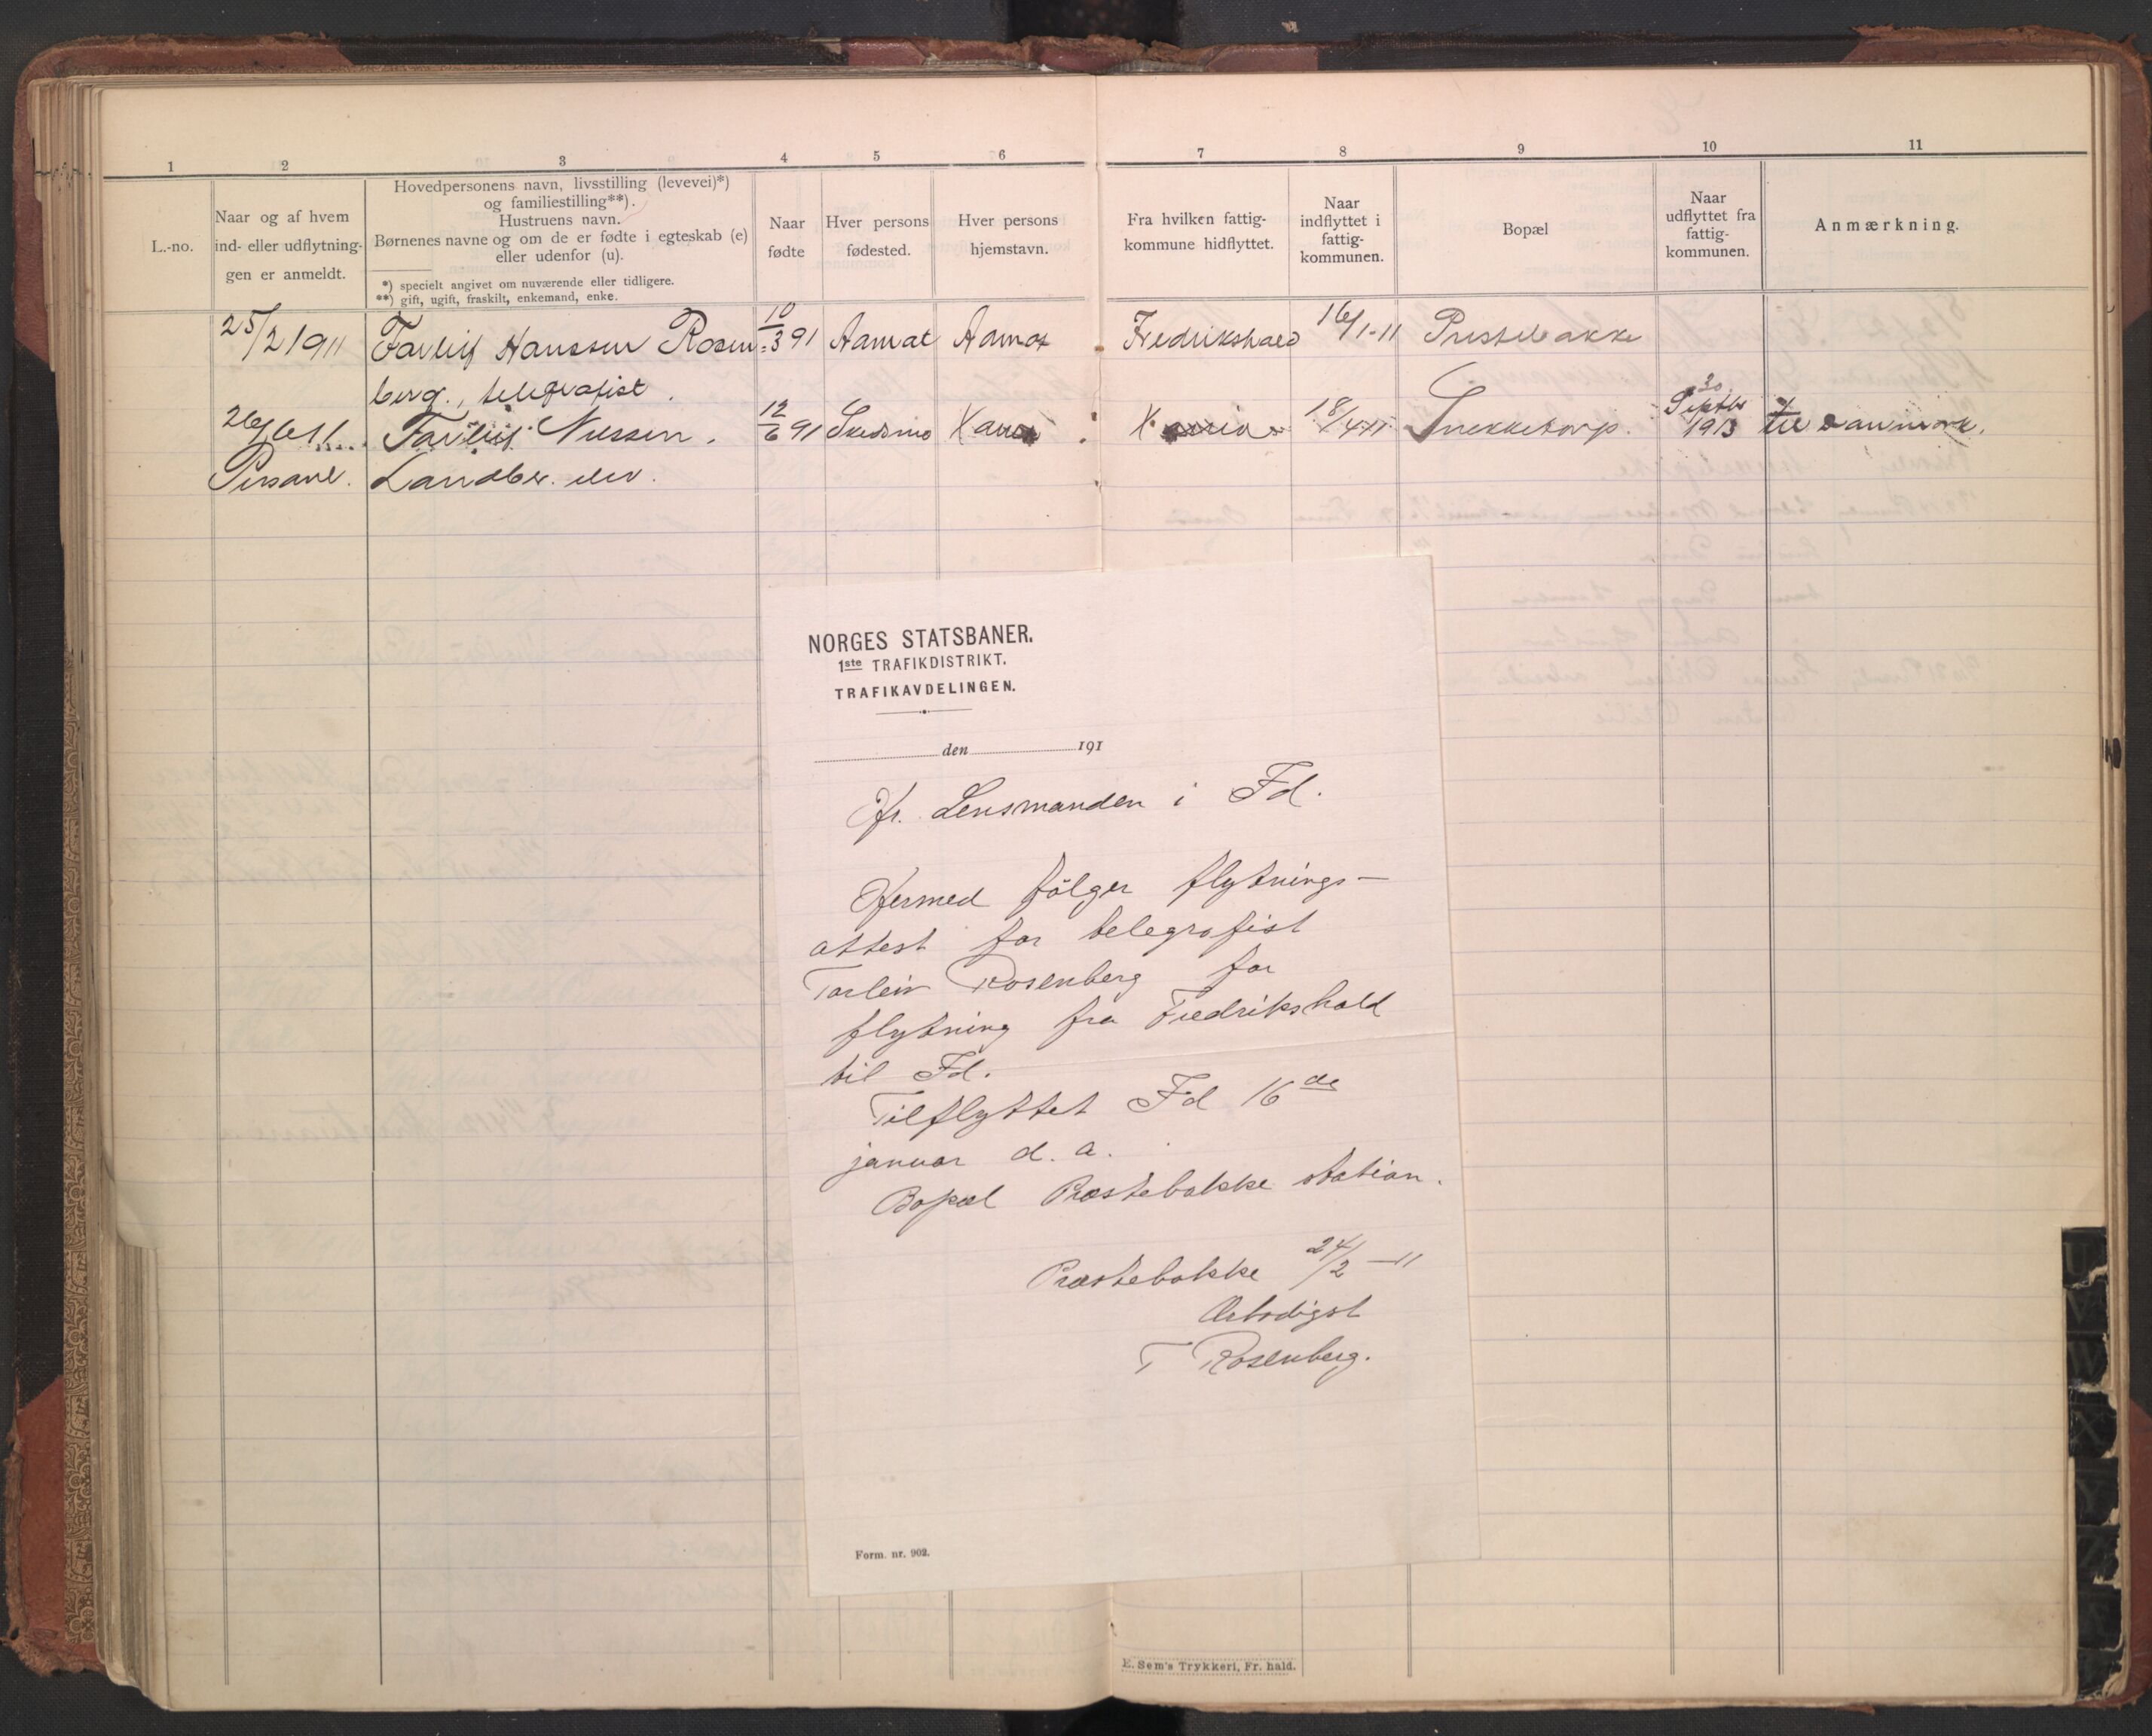 1 2 3 4 5 6 7 8 9 10 11
L.-no.
Naar og af hvem
ind- eller udflytnin-
gen er anmeldt.
Hovedpersonens navn, livsstilling (levevei)*)
og familiestilling**).
Hustruens navn.
Børnenes navne og om de er fødte i egteskab (e)
eller udenfor (u).
*) specielt angivet om nuværende eller tidligere.
**) gift, ugift, fraskilt, enkemand, enke.
Naar
fødte
Hver persons
fødested.
Hver persons
hjemstavn.
Fra hvilken fattig-
kommune hidflyttet.
Naar
indflyttet i
fattig-
kommunen.
Bopæl
Naar
udflyttet fra
fattig-
kommunen.
Anmærkning.
25/2 1911 Torleif Hanssen Rosen= 10/3 91 Aamot Aamot Fredrikshald 16/1-11 Prestebakke
berg., telegrafist.
26/6 11. Torleif Nilssen. 12/6 91 Skedsmo Xania Xania 18/4 11 Snekketorp. 30 Septbr 1913 til Danmark.
Personl. Landbr. elev.
NORGES STATSBANER.
1ste TRAFIKDISTRIKT.
TRAFIKAVDELINGEN.
den 191
Hr. Lensmanden i Fd.
Hermed følger flytnings-
attest for telegrafist
Torleiv Rosenberg for
flytning fra Fredrikshald
til Fd.
Tilflyttet Fd 16de
januar d. a.
Bopæl Præstebakke station.
Præstebakke 24/2 -11
Ærbødigst
T Rosenberg.
Form. nr. 902.
E. Sem's Trykkeri, Fr. hald.
U
V
W
X
Y
Z